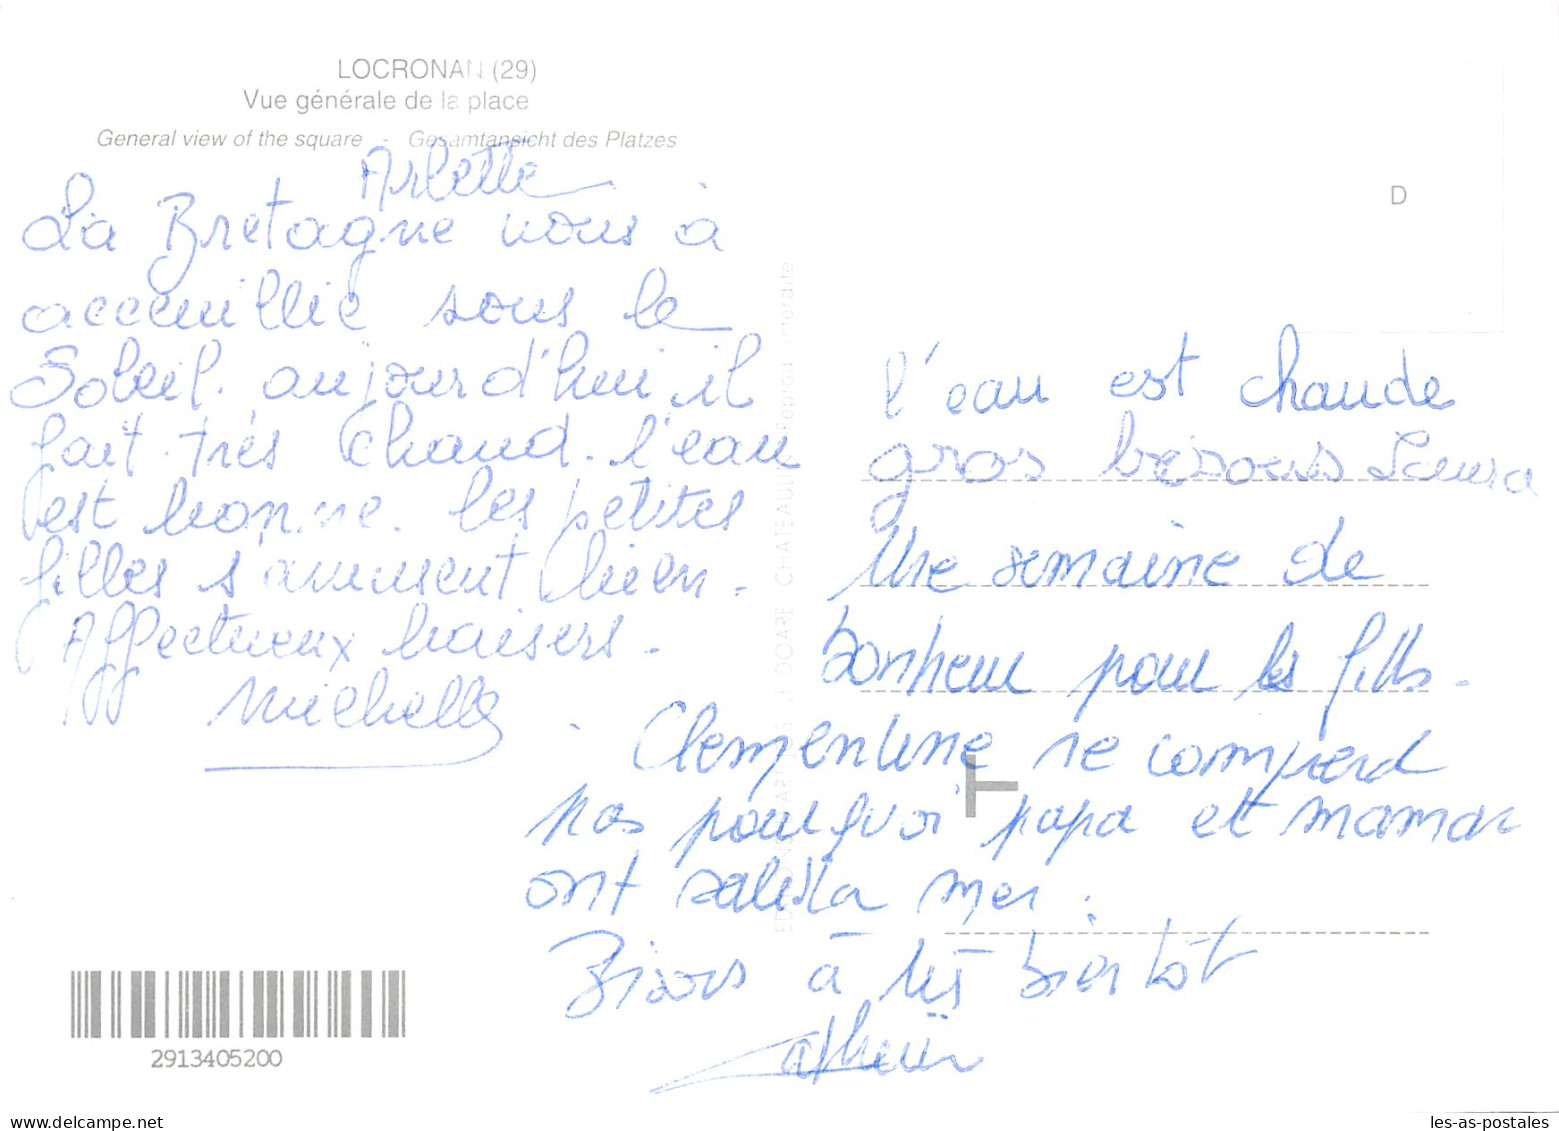 LOCRONAN (29)
Vue générale de la place
General view of the square - Gesamtansicht des Platzes
Arlette
La Bretagne nous à
acceuillie sous le
Soleil. aujourd'hui il
fait très chaud. l'eau
est bonne. les petites
filles s'amusent bien.
Affectueux baisers.
Michelle
l'eau est chaude
gros bisous Laura
Une semaine de
bonheur pour les filles.
Clementine ne comprend
pas pourquoi papa et maman
ont salé la mer.
Bisous à très bientôt
D
2913405200
les-as-postales